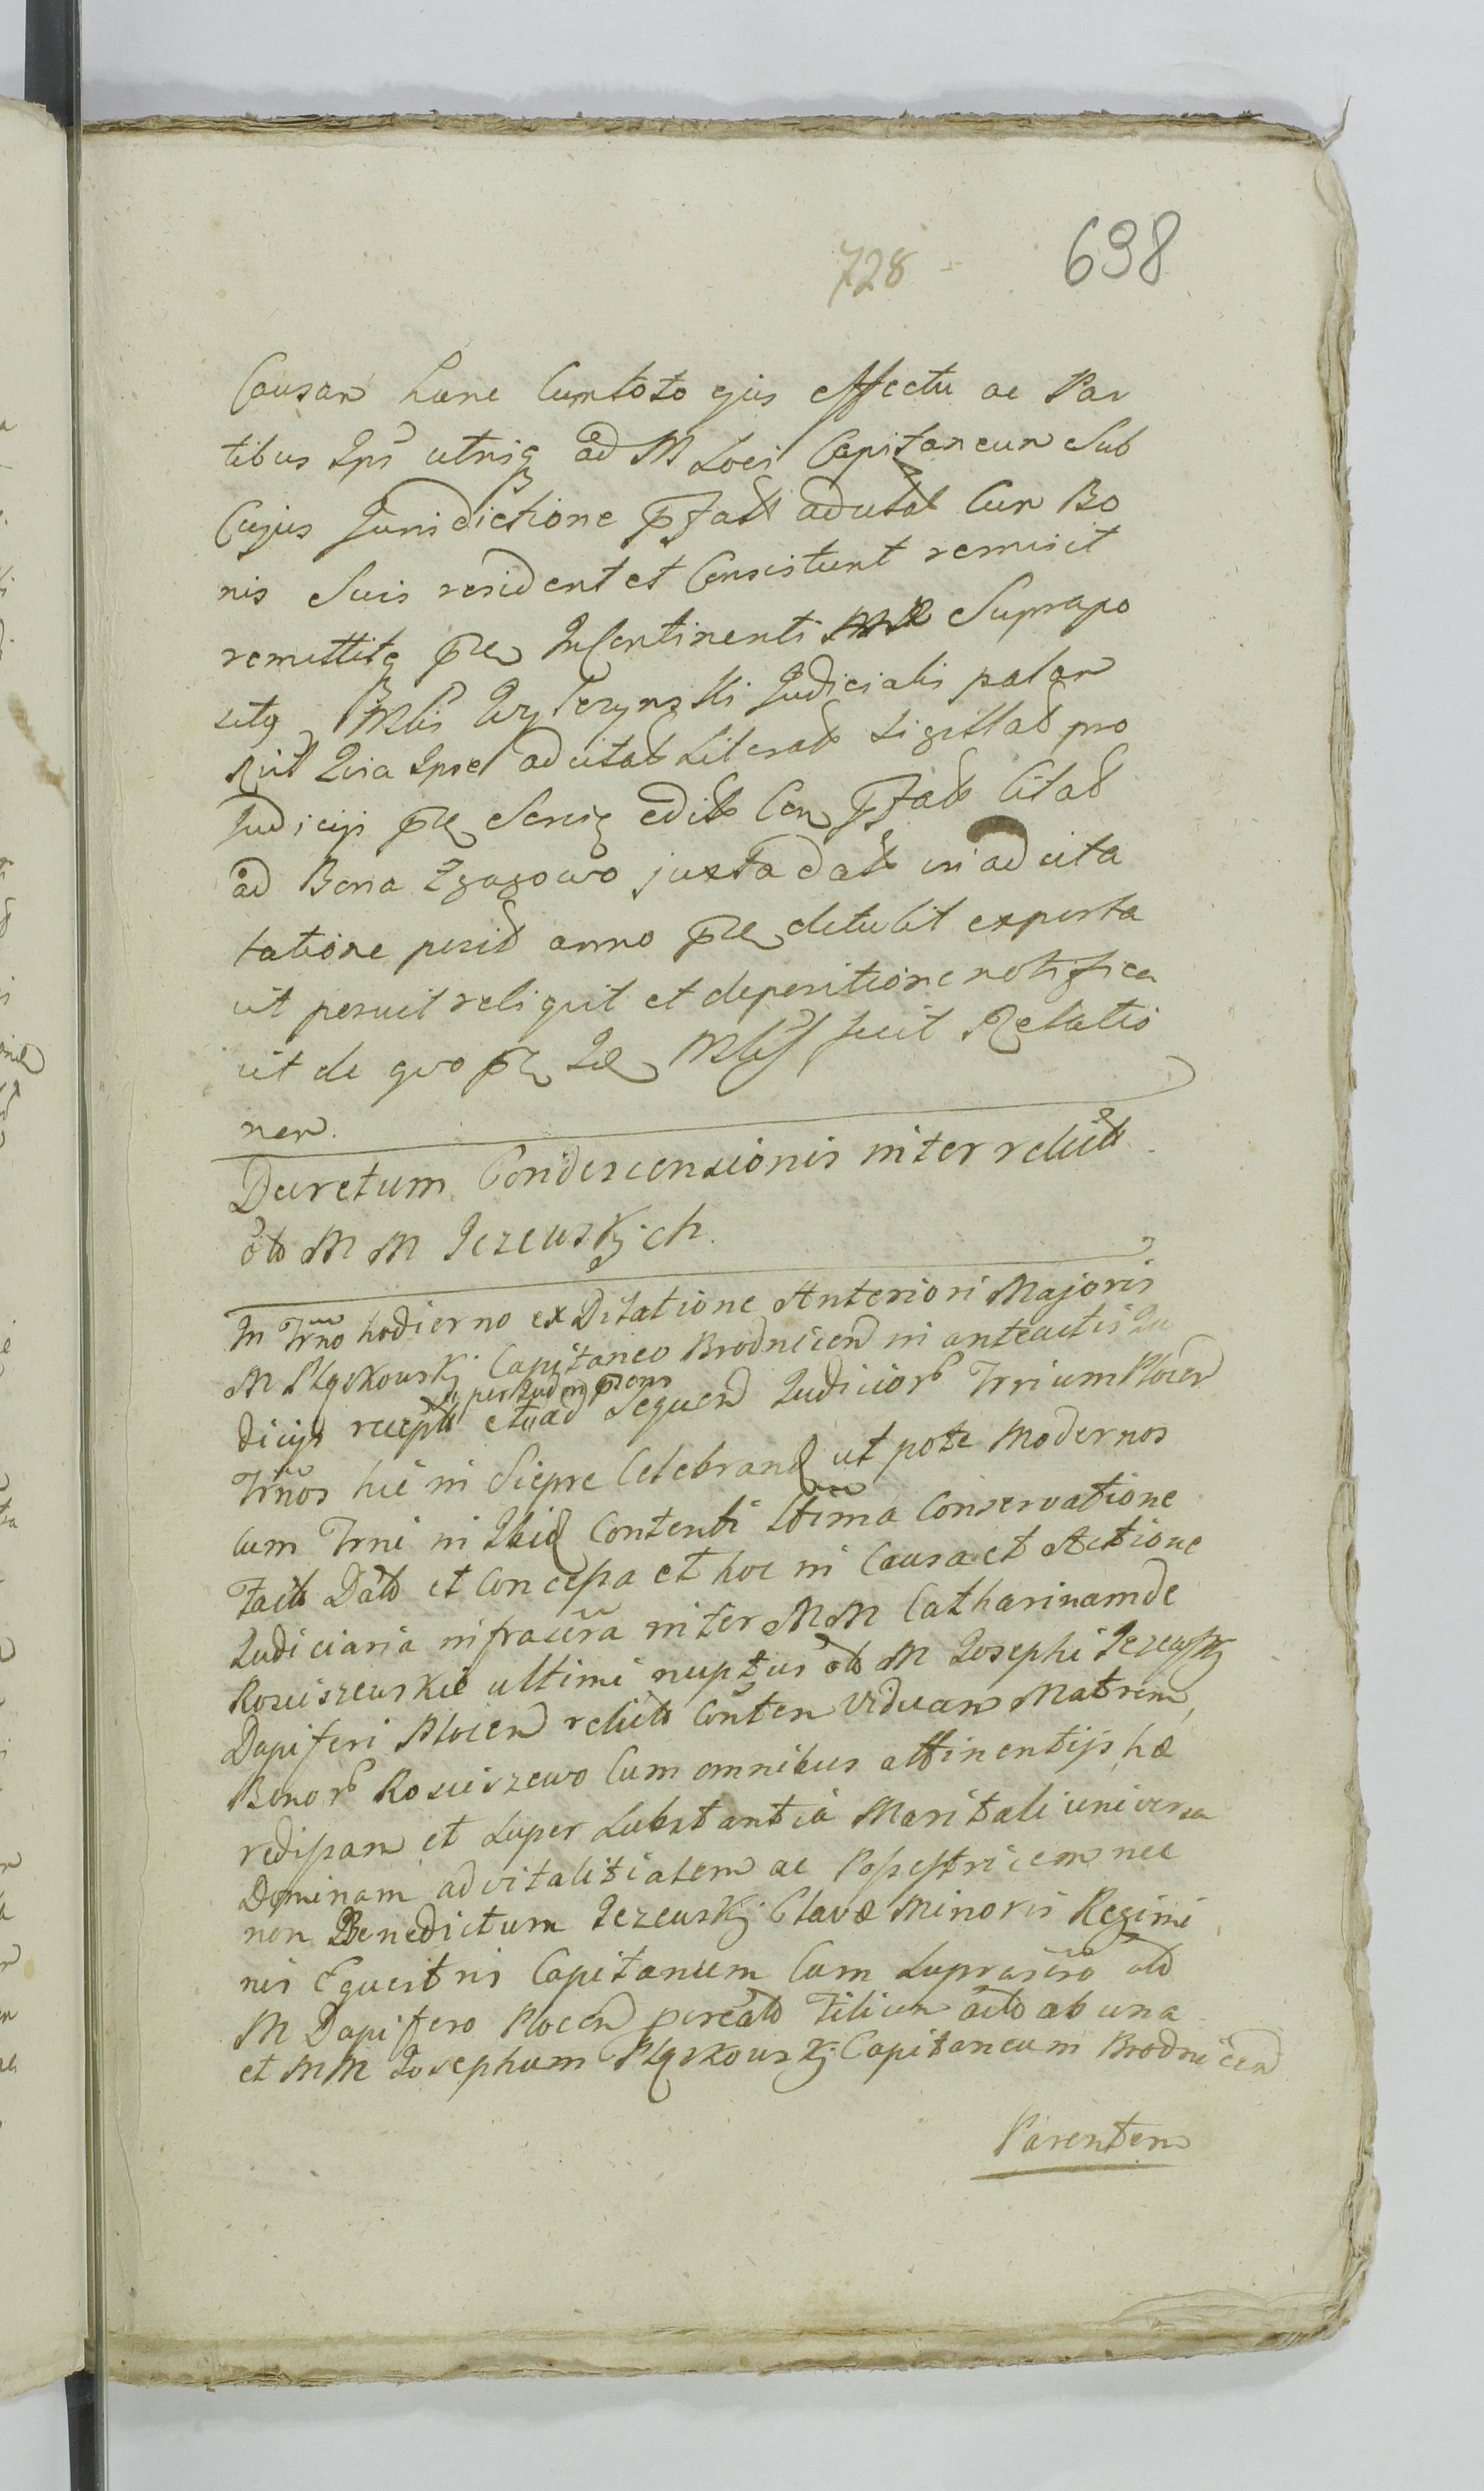 728 698
Causam hanc Cum toto ejus effectu ac Par
tibus Ips utrisq ad M Loci Capitaneum Sub
Cujus Jurisdictione pfatt adcitat Cum Bo
nis Suis resident et Consistunt remisit
remittitq Incontinenti Suprapo
sitq Mlis Judicialis palam
Quia Ipse adcitatt Literatt Sigillatt pro
Judicijs edit pfatt Citatt
ad Bona Zgagowo juxta datt in adcita
tatione anno detulit exporta
vit posuit reliquit et depositione notifica
vit de quo fecit Relatio
nem
Decretum Condescensionis inter relict
olo M M Jezewskich
In Trno hodierno ex Dilatione Anteriori Majoris
M Pląskowskj Capitaneo Brodnicen in anteactis Ju
dicijs recept et ad Sequen Judicior Trrium Plocen
Trnos hic in Siepre Celebrand ut pote modernos
cum Trni in Ibid Contenti Ltima Conservatione
Fact Dato et Concessa et hoc in Causa et Actione
Judiciaria infrascra inter MM Catharinam de
Rosciszewskie ultimi nuptus olo M Josephi Jezewskj
Dapiferi Plocen relict Conten Viduam Matrem,
Bonor Rosciszewo Cum omnibus attinentijs hæ
redissam et super substantia Maritali universa
Dominam advitalitialem ac Possestricem nec
non Benedictum Jezewskj Clavæ Minoris Regimi
nis Equestris Capitanum Cum suprascro olo
M Dapifero Plocen procreato Filium acto ab una
et MM Josephum Pląskowskj Capitaneum Brodnicen
Parentem